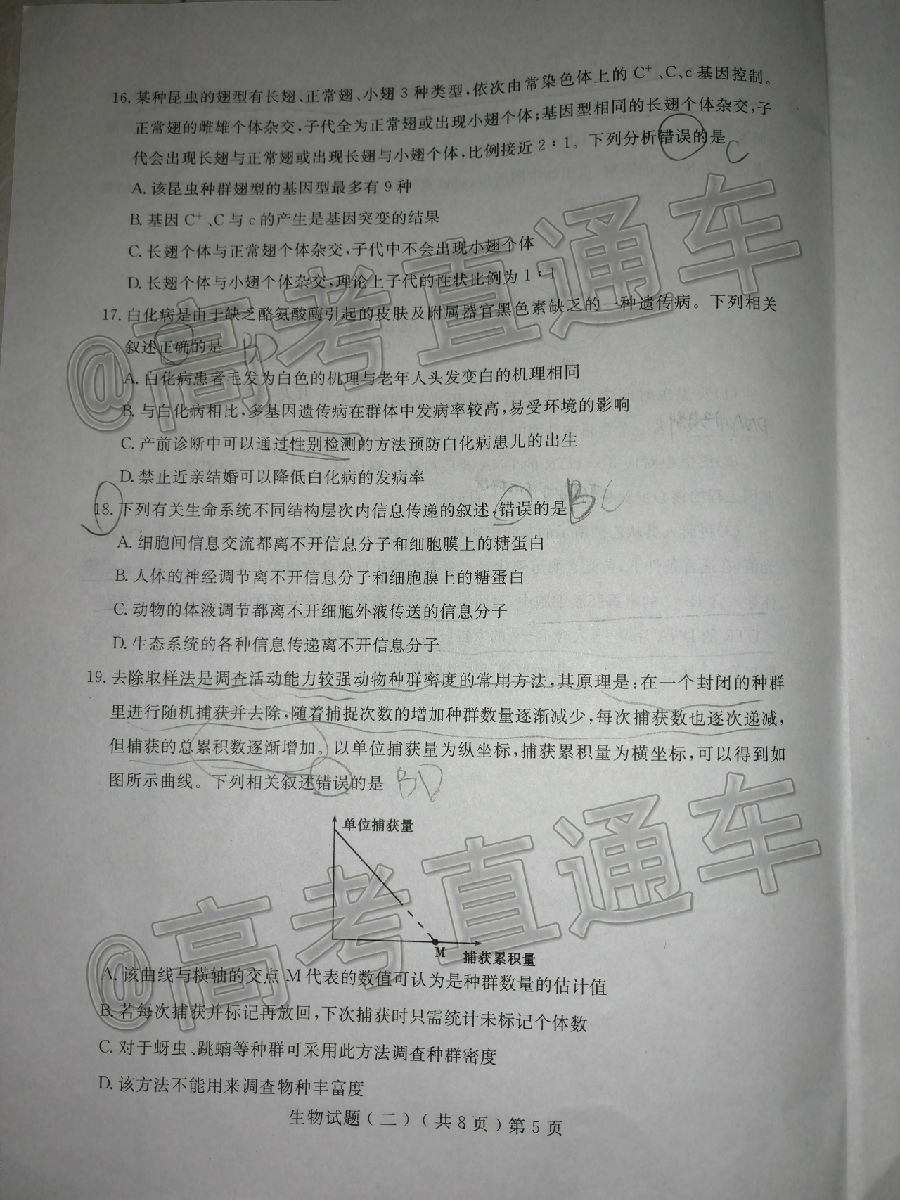 16. 某种昆虫的翅型有长翅、正常翅、小翅 3 种类型,依次由常染色体上的 C⁺、C、c 基因控制。
正常翅的雌雄个体杂交,子代全为正常翅或出现小翅个体;基因型相同的长翅个体杂交,子
代会出现长翅与正常翅或出现长翅与小翅个体,比例接近 2∶1。下列分析错误的是 C
A. 该昆虫种群翅型的基因型最多有 9 种
B. 基因 C⁺、C 与 c 的产生是基因突变的结果
C. 长翅个体与正常翅个体杂交,子代中不会出现小翅个体
D. 长翅个体与小翅个体杂交,理论上子代的性状比例为 1∶1
17. 白化病是由于缺乏酪氨酸酶引起的皮肤及附属器官黑色素缺乏的一种遗传病。下列相关
叙述正确的是
A. 白化病患者毛发为白色的机理与老年人头发变白的机理相同
B. 与白化病相比,多基因遗传病在群体中发病率较高,易受环境的影响
C. 产前诊断中可以通过性别检测的方法预防白化病患儿的出生
D. 禁止近亲结婚可以降低白化病的发病率
18. 下列有关生命系统不同结构层次内信息传递的叙述,错误的是 BC
A. 细胞间信息交流都离不开信息分子和细胞膜上的糖蛋白
B. 人体的神经调节离不开信息分子和细胞膜上的糖蛋白
C. 动物的体液调节都离不开细胞外液传送的信息分子
D. 生态系统的各种信息传递离不开信息分子
19. 去除取样法是调查活动能力较强动物种群密度的常用方法,其原理是:在一个封闭的种群
里进行随机捕获并去除,随着捕捉次数的增加种群数量逐渐减少,每次捕获数也逐次递减,
但捕获的总累积数逐渐增加。以单位捕获量为纵坐标,捕获累积量为横坐标,可以得到如
图所示曲线。下列相关叙述错误的是 BD
单位捕获量
M 捕获累积量
A. 该曲线与横轴的交点 M 代表的数值可认为是种群数量的估计值
B. 若每次捕获并标记再放回,下次捕获时只需统计未标记个体数
C. 对于蚜虫、跳蝻等种群可采用此方法调查种群密度
D. 该方法不能用来调查物种丰富度
生物试题(二)(共 8 页)第 5 页
@高考直通车
@高考直通车